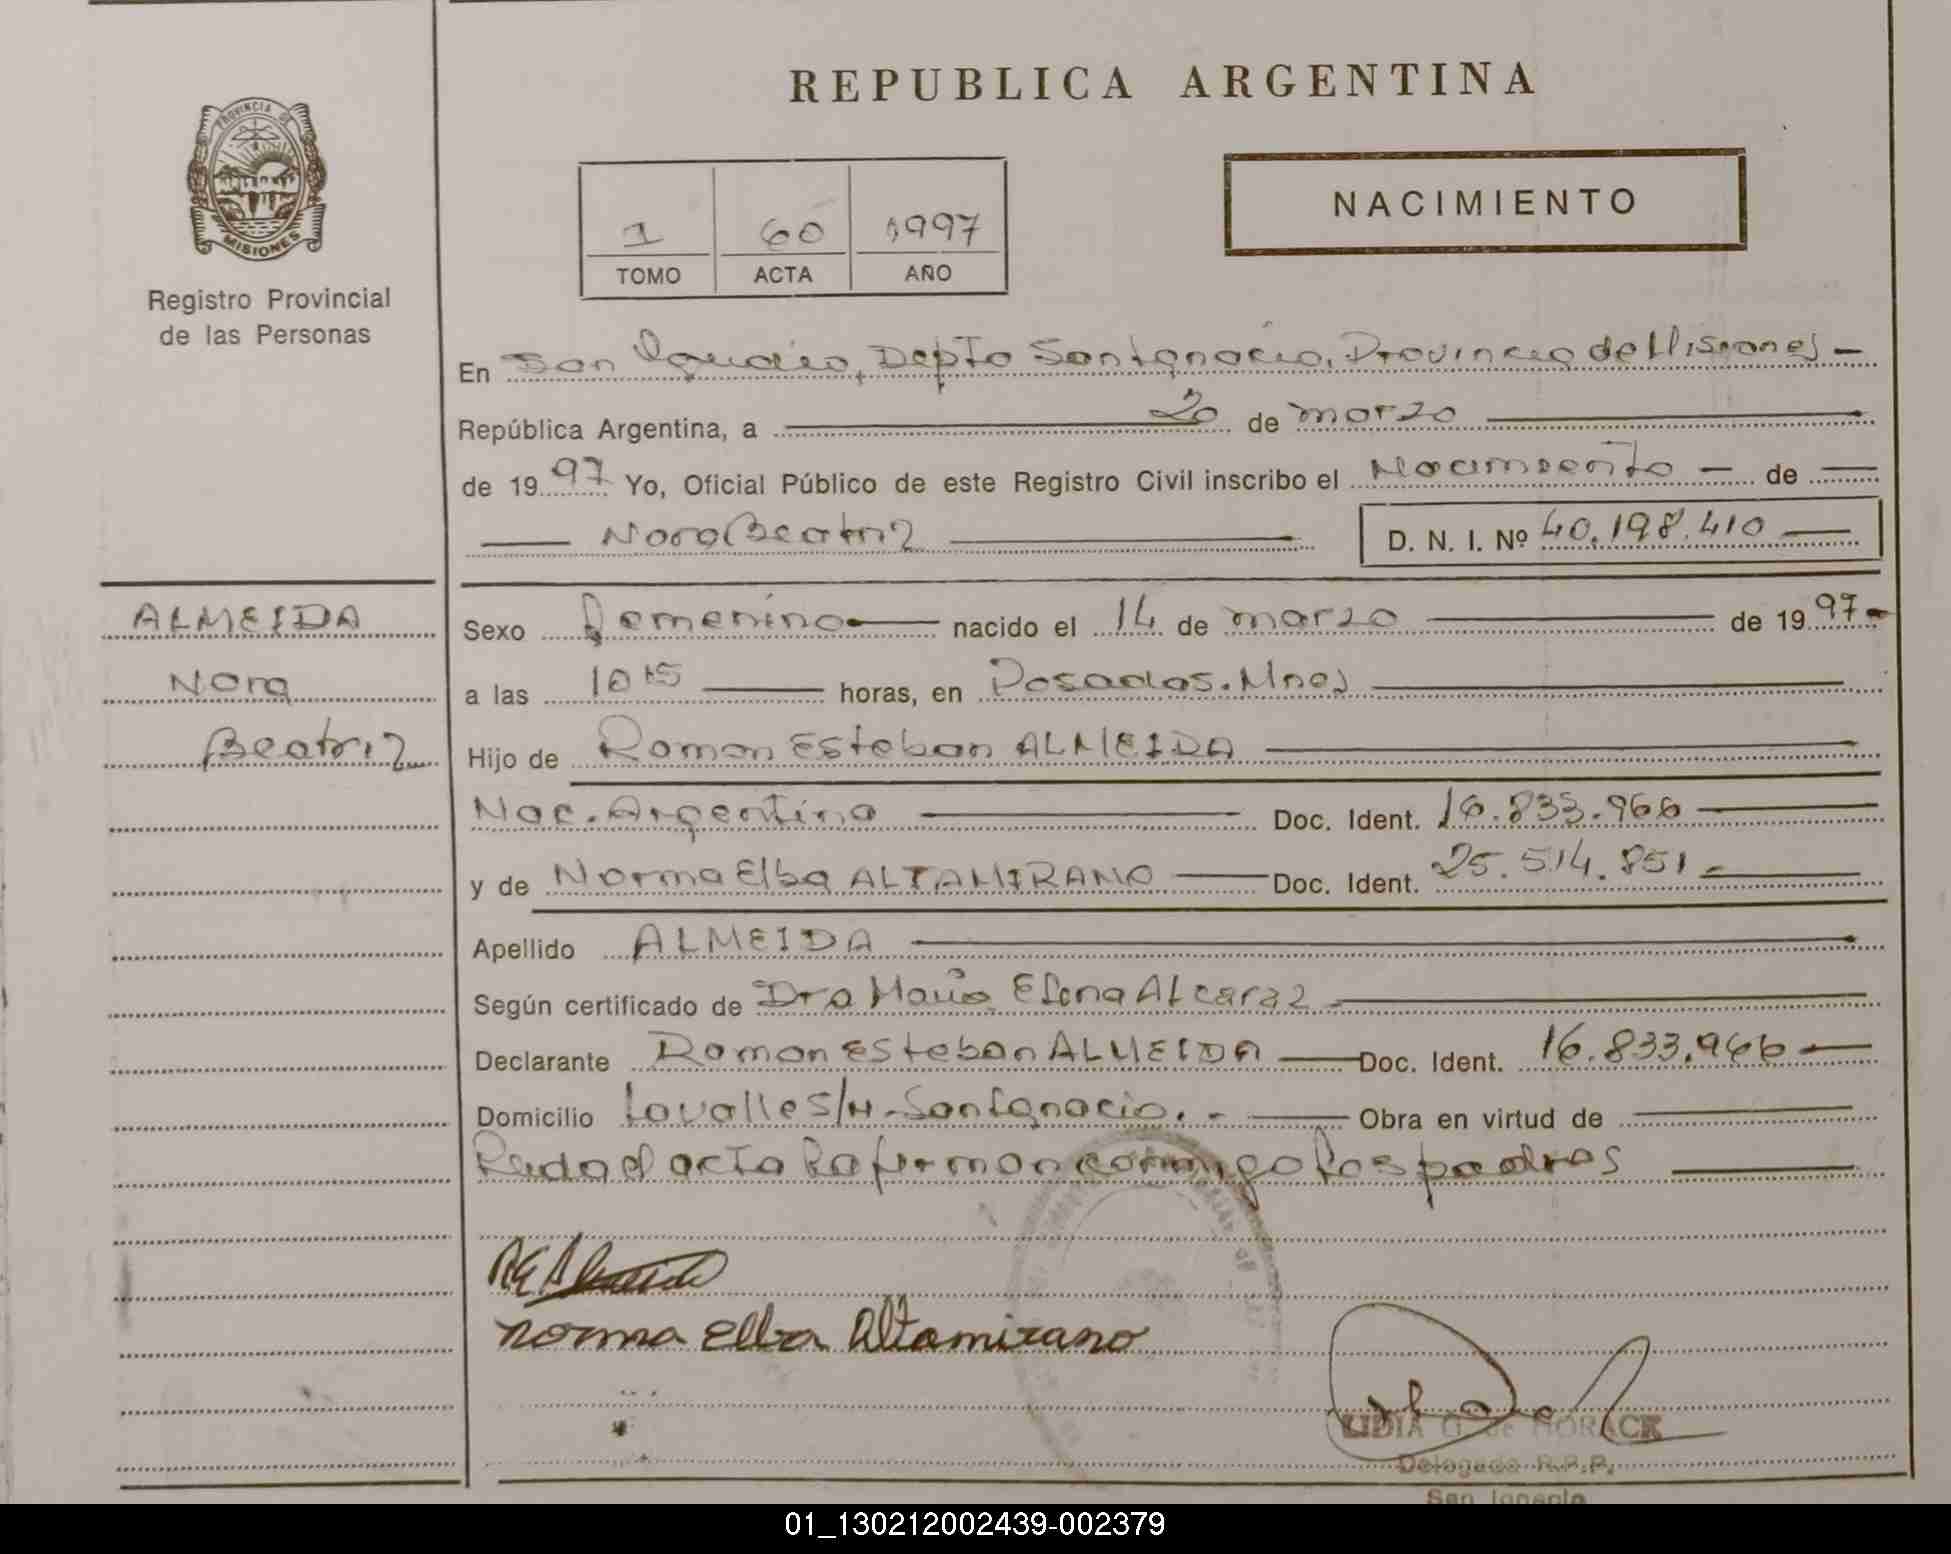 REPUBLICA ARGENTINA
PROVINCIA DE
MISIONES
Registro Provincial
de las Personas
1 60 1997
TOMO ACTA AÑO
NACIMIENTO
En San Ignacio, Depto San Ignacio, Provincia de Misiones
República Argentina, a 20 de marzo
de 1997 Yo, Oficial Público de este Registro Civil inscribo el Nacimiento de
Nora Beatriz D. N. I. Nº 40.198.410
ALMEIDA
Nora
Beatriz
Sexo femenino nacido el 14 de marzo de 1997
a las 10 15 horas, en Posadas. Mnes
Hijo de Ramon Esteban ALMEIDA
Nac. Argentina Doc. Ident. 16.833.966
y de Norma Elba ALTAMIRANO Doc. Ident. 25.514.851
Apellido ALMEIDA
Según certificado de Dra Maria Elena Alcaraz
Declarante Ramon Esteban ALMEIDA Doc. Ident. 16.833.966
Domicilio Lavalle S/N - San Ignacio. Obra en virtud de
Leida el acta la firman conmigo los padres
Norma Elba Altamirano
LIDIA G. de HORACK
Delegada R.P.P.
San Ignacio
01_130212002439-002379